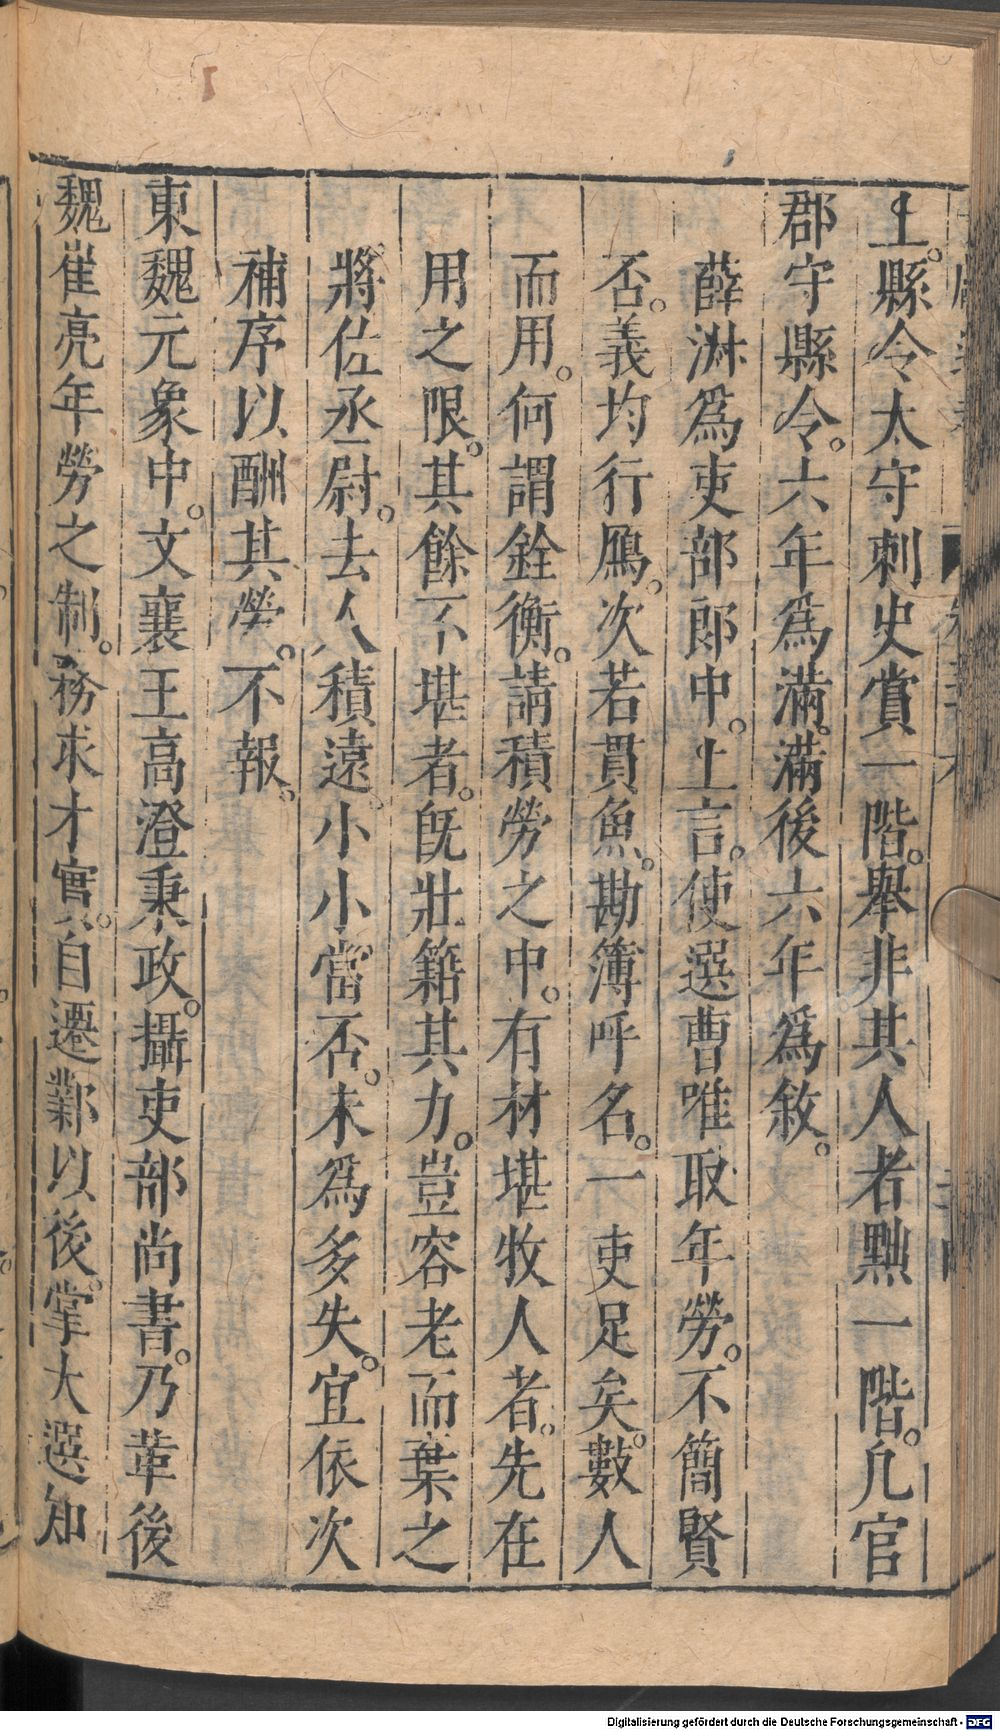 上。縣令太守刺史賞一階。舉非其人者黜一階。凡官
郡守縣令。六年爲滿。滿後六年爲敘。
薛淋爲吏部郎中。上言。使選曹唯取年勞。不簡賢
否。義均行鴈。次若貫魚。勘簿呼名。一吏足矣。數人
而用。何謂銓衡。請積勞之中。有材堪牧人者。先在
用之限。其餘不堪者。旣壯籍其力。豈容老而棄之
將佐丞尉。去人積遠。小小當否。未爲多失。宜依次
補序以酬其勞。不報。
東魏元象中。文襄王高澄秉政。攝吏部尚書。乃革後
魏崔亮年勞之制。務求才實。自遷鄴以後。掌大選知
Digitalisierung gefördert durch die Deutsche Forschungsgemeinschaft - DFG